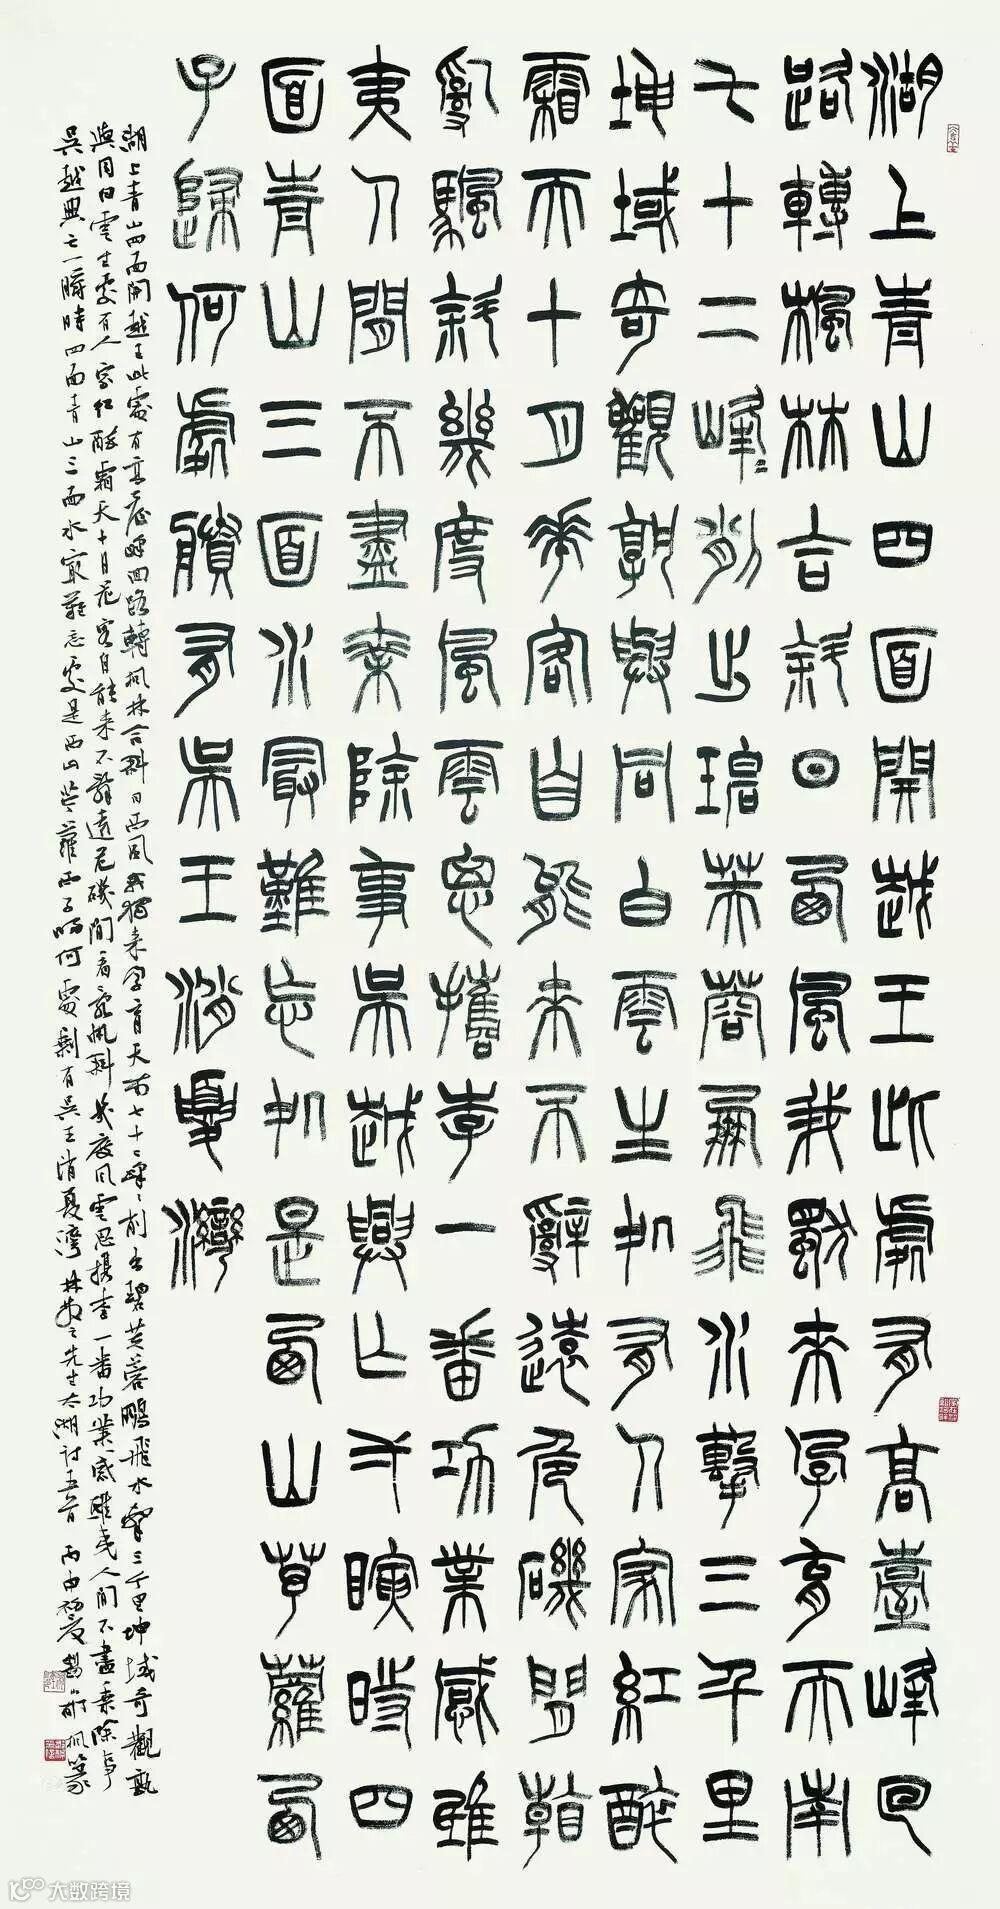 湖上青山四面開越王此處有高臺峰回
路轉楓林合斜日西風我獨來字育天南
七十二峰〻削出碧芙蓉鵬飛水擊三千里
坤域奇觀孰與同白雲生處有人家紅醉
霜天十月花客自能來不辭遠危磯間看
亂颿斜幾度風雲思攜李一番功業感鴟
夷人間不盡乘除事吳越興亡一瞬時四
面青山三面水最難忘處是西山苧蘿西
子歸何處賸有吳王消夏灣
湖上青山四面開越王此處有高臺峰回路轉楓林合斜日西風我獨來字育天南七十二峰〻削出碧芙蓉鵬飛水擊三千里坤域奇觀孰
與同白雲生處有人家紅醉霜天十月花客自能來不辭遠危磯間看亂帆斜幾度風雲思攜李一番功業感鴟夷人間不盡乘除事
吳越興亡一瞬時四面青山三面水最難忘處是西山苧蘿西子歸何處剩有吳王消夏灣 林散之先生太湖詩五首 丙申初夏 楓篆
大数跨境